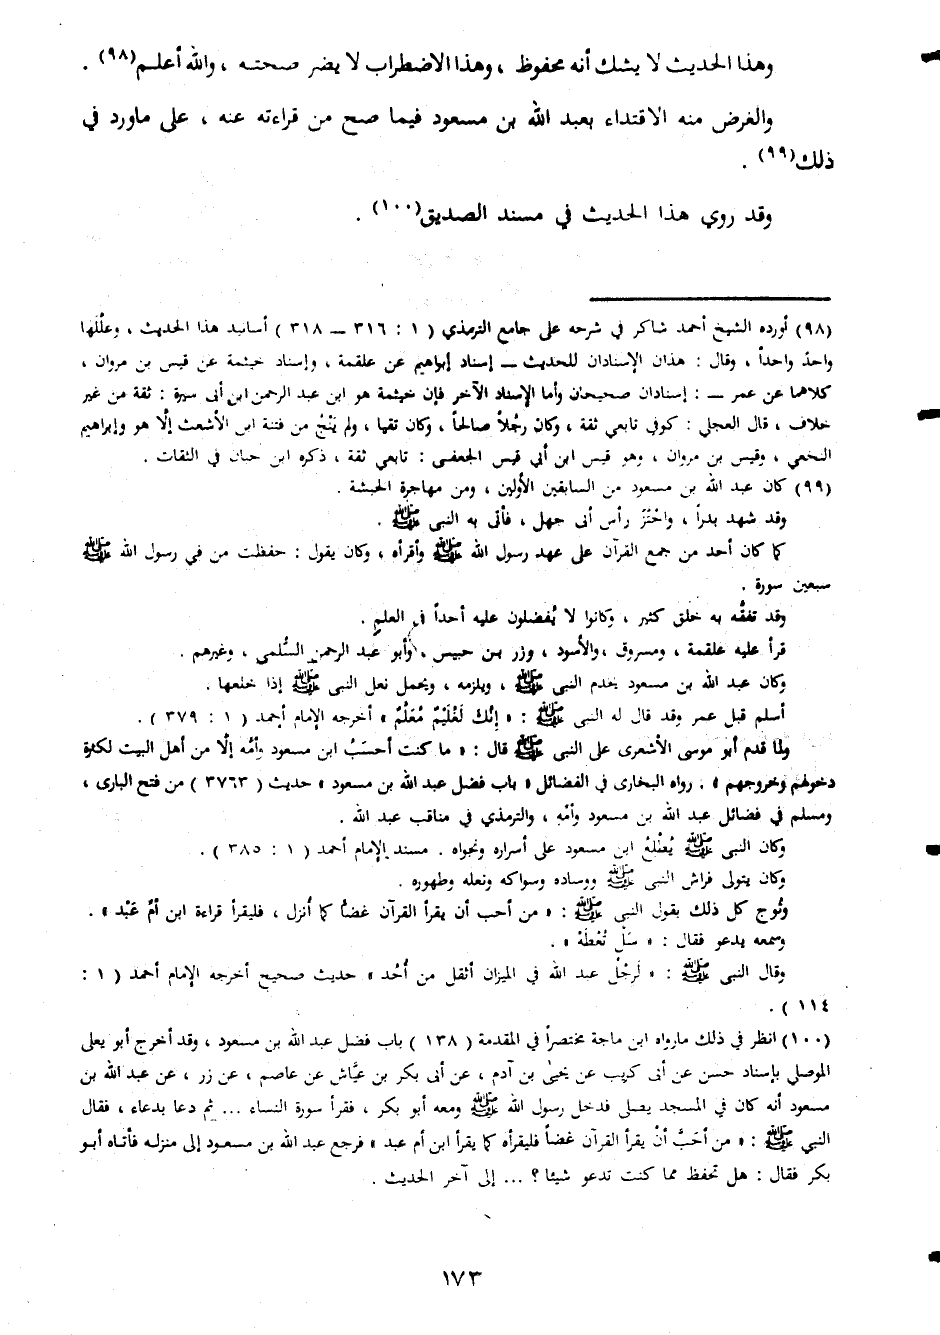 وهذا الحديث لا يشك أنه محفوظ ، وهذا الاضطراب لا يضر صحته ، والله أعلم(٩٨) .
والغرض منه الاقتداء بعبد الله بن مسعود فيما صح من قراءته عنه ، على ماورد في
ذلك(٩٩) .
وقد روي هذا الحديث في مسند الصديق(١٠٠) .
(٩٨) أورده الشيخ أحمد شاكر في شرحه على جامع الترمذي ( ١ : ٣١٦ ــ ٣١٨ ) أسانيد هذا الحديث ، وعلّلها
واحدً واحداً ، وقال : هذان الإسنادان للحديث ــ إسناد إبراهيم عن علقمة ، وإسناد خيثمة عن قيس بن مروان ،
كلاهما عن عمر ــ : إسنادان صحيحان وأما الإسناد الآخر فإن خيثمة هو ابن عبد الرحمن ابن أبى سبرة : ثقة من غير
خلاف ، قال العجلي : كوفي تابعي ثقة ، وكان رجُلاً صالحاً ، وكان تقيا ، ولم يَنْجُ من فتنة ابن الأشعث إلّا هو وإبراهيم
النخعي ، وقيس بن مروان ، وهو قيس ابن أبي قيس الجعفى : تابعي ثقة ، ذكره ابن حبان في الثقات .
(٩٩) كان عبد الله بن مسعود من السابقين الأولين ، ومن مهاجرة الحبشة .
وقد شهد بدراً ، واحْتَزّ رأس أبى جهل ، فأتى به النبى ﷺ .
كما كان أحد من جمع القرآن على عهد رسول الله ﷺ وأقرأه ، وكان يقول : حفظت من في رسول الله ﷺ
سبعين سورة .
وقد تفقّه به خلق كثير ، وكانوا لا يُفضلون عليه أحداً في العلم .
قرأ عليه علقمة ، ومسروق ، والأسود ، وزر بن حبيس ، وأبو عبد الرحمن السُّلمى ، وغيرهم .
وكان عبد الله بن مسعود يخدم النبى ﷺ ، ويلزمه ، ويحمل نعل النبى ﷺ إذا خلعها .
أسلم قبل عمر وقد قال له النبى ﷺ : « إنّك لَغُلَيْمٌ مُعَلَّمٌ » أخرجه الإمام أحمد ( ١ : ٣٧٩ ) .
ولما قدم أبو موسى الأشعرى على النبى ﷺ قال : « ما كنت أحسَبُ ابن مسعود وأمّه إلّا من أهل البيت لكثرة
دخولهم وخروجهم » . رواه البخارى في الفضائل « باب فضل عبد الله بن مسعود » حديث ( ٣٧٦٣ ) من فتح البارى ،
ومسلم في فضائل عبد الله بن مسعود وأمّهِ ، والترمذي في مناقب عبد الله .
وكان النبى ﷺ يُطْلِعُ ابن مسعود على أسراره ونجواه . مسند الإمام أحمد ( ١ : ٣٨٥ ) .
وكان يتولى فراش النبى ﷺ ووساده وسواكه ونعله وطهوره .
وتُوج كل ذلك بقول النبى ﷺ : « من أحب أن يقرأ القرآن غضًا كما أُنزل ، فليقرأ قراءة ابن أمّ عَبْد » .
وسمعه يدعو فقال : « سَلْ تُعْطَهْ » .
وقال النبى ﷺ : « لَرِجْلُ عبد الله في الميزان أثقل من أُحُد » حديث صحيح أخرجه الإمام أحمد ( ١ :
١١٤ ) .
(١٠٠) انظر في ذلك مارواه ابن ماجة مختصراً في المقدمة ( ١٣٨ ) باب فضل عبد الله بن مسعود ، وقد أخرج أبو يعلى
الموصلي بإسناد حسن عن أبى كريب عن يحيىٰ بن آدم ، عن أبى بكر بن عيّاش عن عاصم ، عن زر ، عن عبد الله بن
مسعود أنه كان في المسجد يصلى فدخل رسول الله ﷺ ومعه أبو بكر ، فقرأ سورة النساء ... ثم دعا بدعاء ، فقال
النبي ﷺ : « من أحَبَّ أنْ يقرأ القرآن غضاً فليقرأه كما يقرأ ابن أم عبد » فرجع عبد الله بن مسعود إلى منزله فأتاه أبو
بكر فقال : هل تحفظ مما كنت تدعو شيئا ؟ ... إلى آخر الحديث .
١٧٣